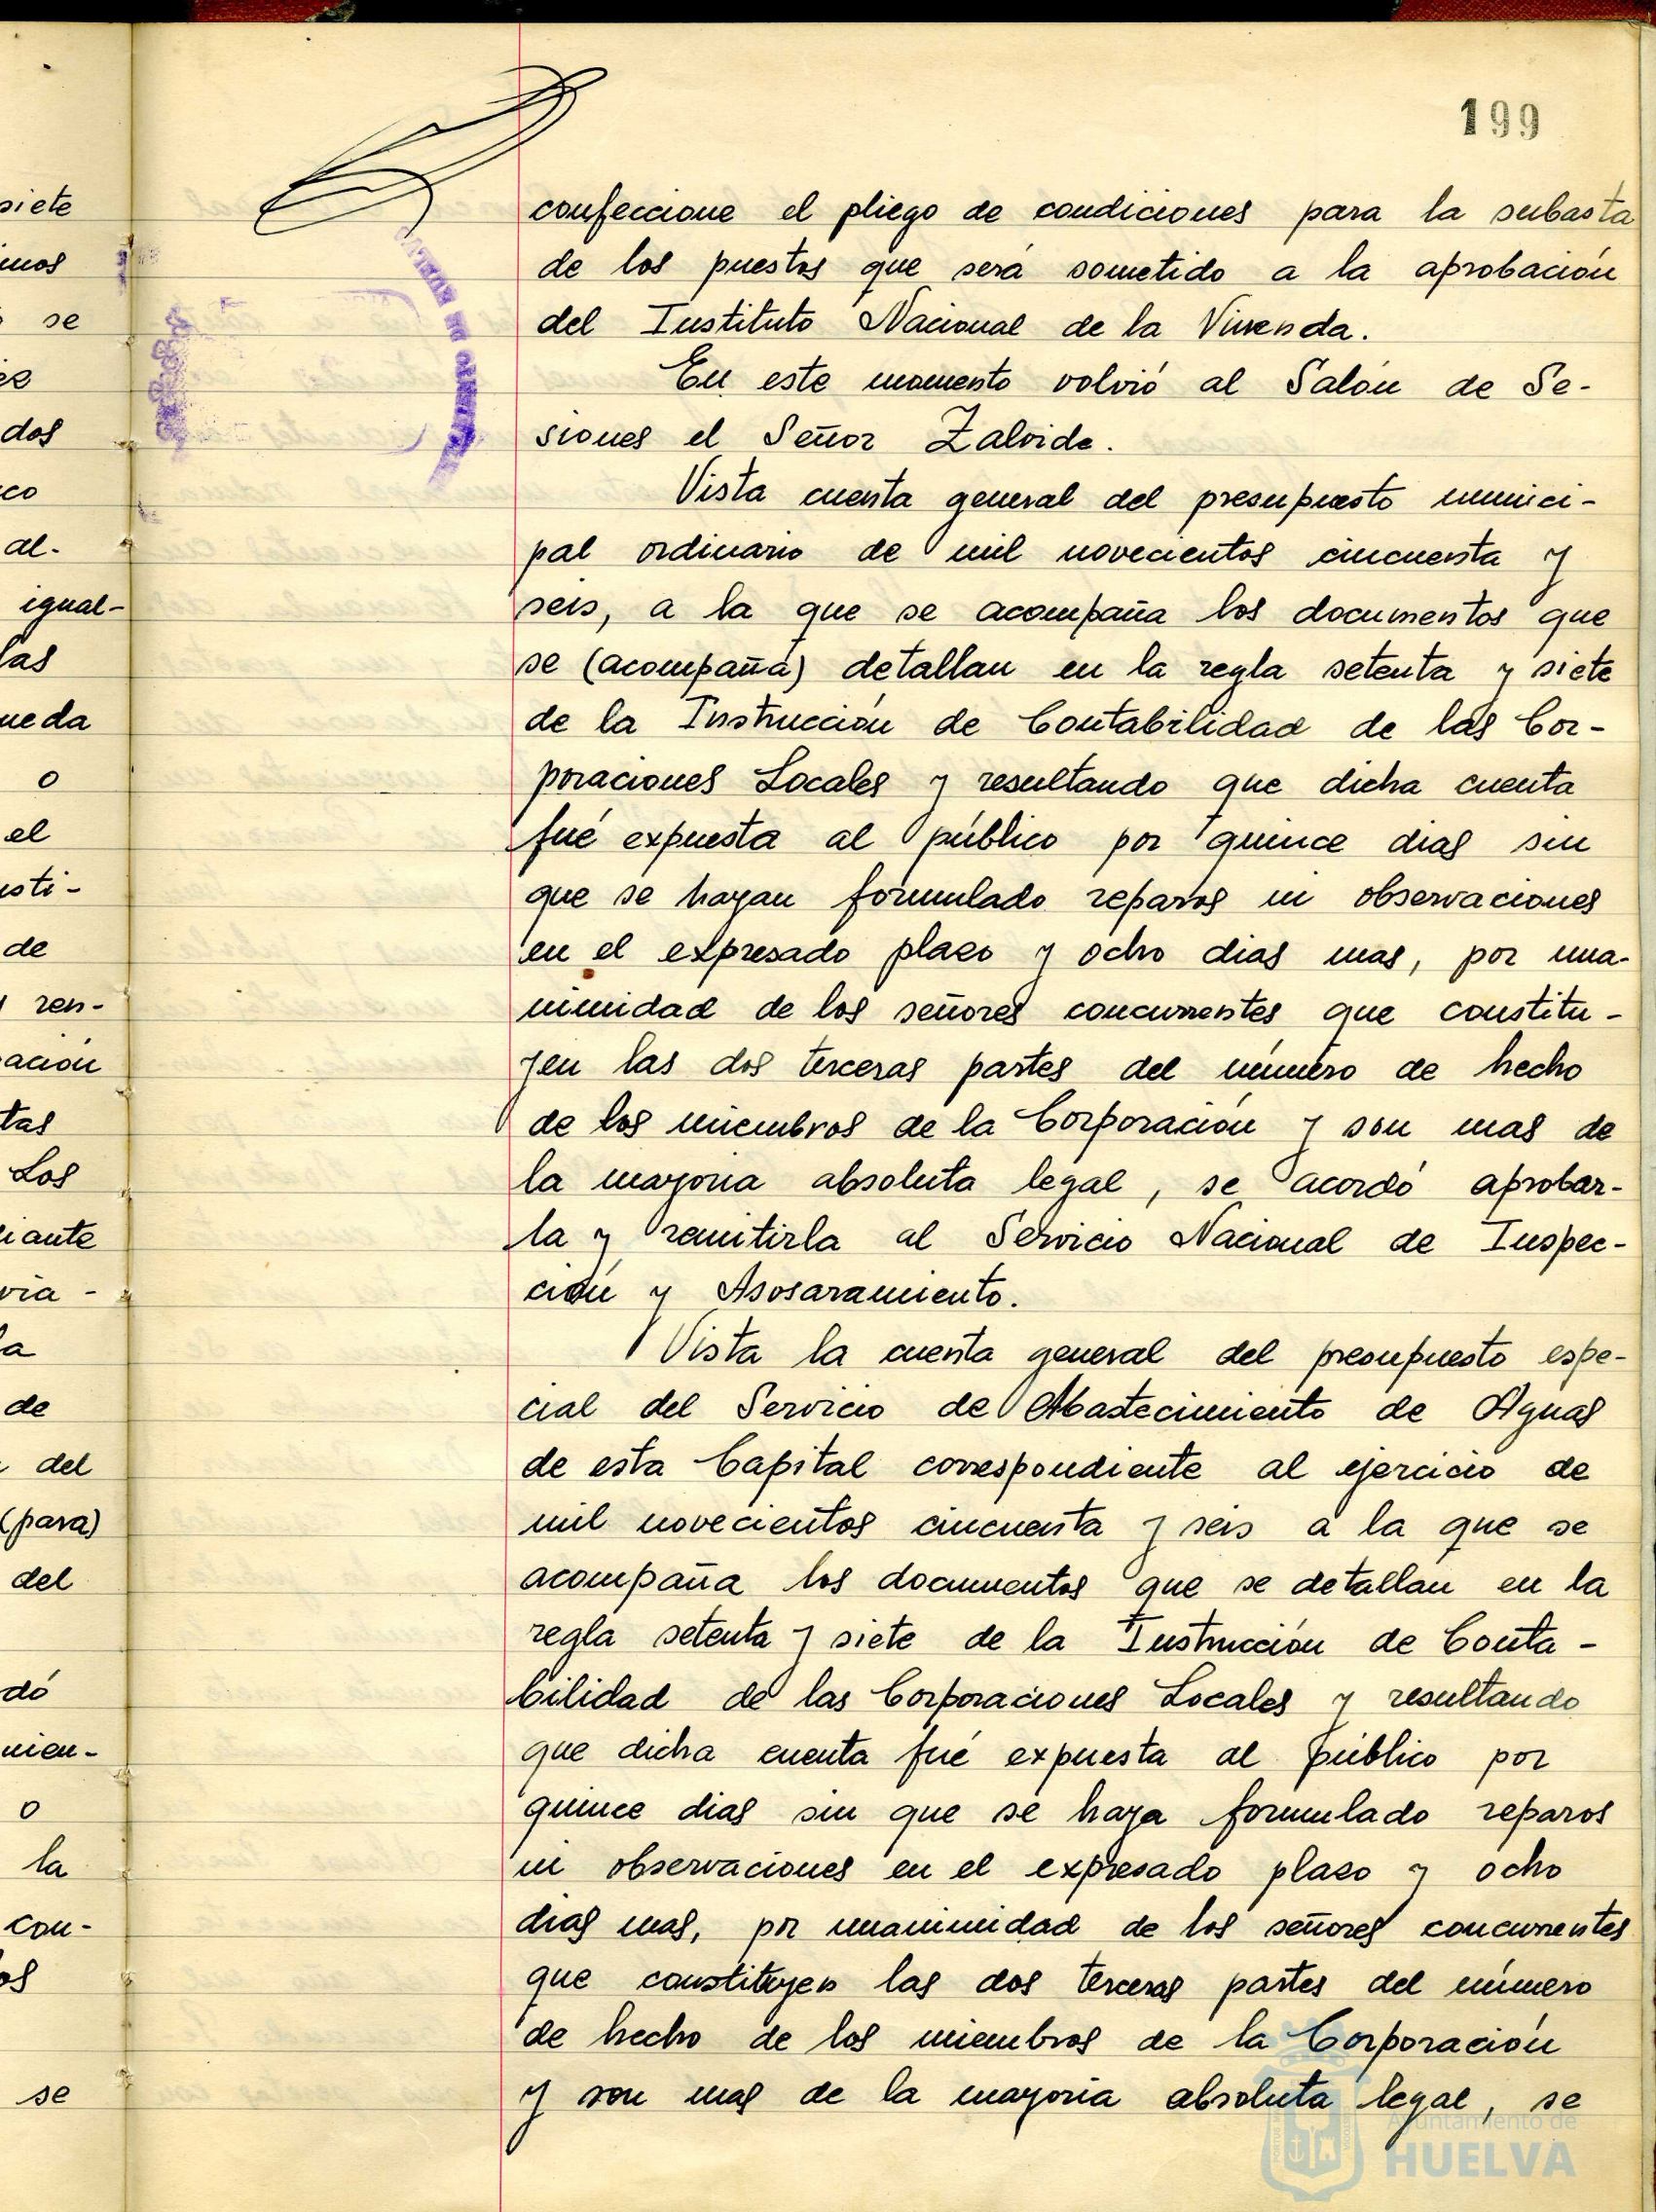 199
confeccione el pliego de condiciones para la subasta
de los puestos que será sometido a la aprobación
del Instituto Nacional de la Vivienda.
En este momento volvió al Salón de Se-
siones el Señor Zalvide.
Vista cuenta general del presupuesto munici-
pal ordinario de mil novecientos cincuenta y
seis, a la que se acompaña los documentos que
se (acompaña) detallan en la regla setenta y siete
de la Instrucción de Contabilidad de las Cor-
poraciones Locales y resultando que dicha cuenta
fué expuesta al público por quince dias sin
que se hayan formulado reparos ni observaciones
en el expresado plazo y ocho dias mas, por una-
nimidad de los señores concurrentes que constitu-
yen las dos terceras partes del número de hecho
de los miembros de la Corporación y son mas de
la mayoria absoluta legal, se acordó aprobar-
la y remitirla al Servicio Nacional de Inspec-
ción y Asosaramiento.
Vista la cuenta general del presupuesto espe-
cial del Servicio de Abastecimiento de Aguas
de esta Capital correspondiente al ejercicio de
mil novecientos cincuenta y seis a la que se
acompaña los documentos que se detallan en la
regla setenta y siete de la Instrucción de Conta-
bilidad de las Corporaciones Locales y resultando
que dicha cuenta fué expuesta al público por
quince dias sin que se haya formulado reparos
ni observaciones en el expresado plazo y ocho
dias mas, por unanimidad de los señores concurrentes
que constituyen las dos terceras partes del número
de hecho de los miembros de la Corporación
y son mas de la mayoria absoluta legal, se
Ayuntamiento de
HUELVA
siete
se
dos
co
al-
igual-
las
o
el
de
ren-
tas
Los
la
de
del
(para)
del
dó
o
la
con-
se